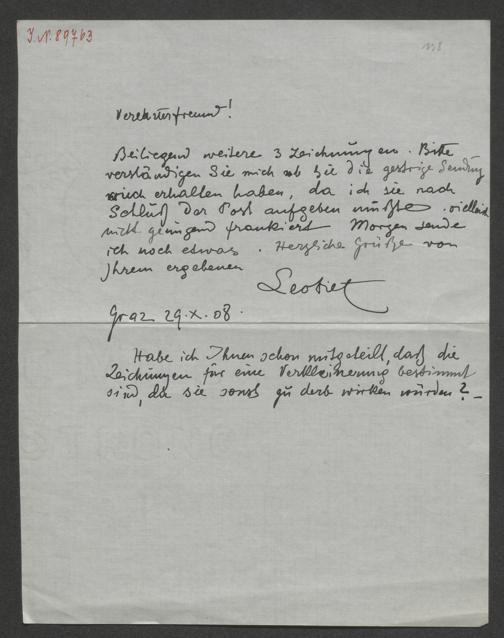 J.N. 89763
138
Verehrtfreund!
Beiliegend weitere 3 Zeichnungen. Bitte
verständigen Sie mich ob Sie die gestrige Sendung
auch erhalten haben, da ich sie nach
Schluß der Post aufgeben mußte. vielleicht
nicht genügend frankiert Morgen sende
ich noch etwas. Herzliche Grüße von
Ihrem ergebenen
Graz 29.X.08.
Habe ich Ihnen schon mitgeteilt, daß die
Zeichnungen für eine Verkleinerung bestimmt
sind, da sie sonst zu derb wirken würden?